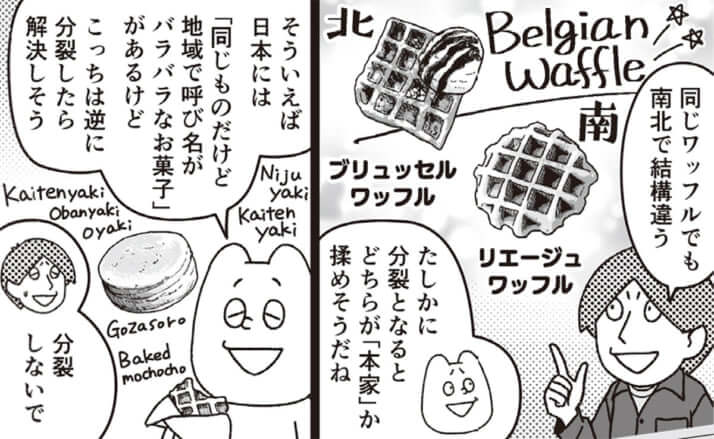 Belgian
Waffle
北
ブリュッセル
ワッフル
南
リエージュ
ワッフル
同じワッフルでも
南北で結構違う
たしかに
分裂となると
どちらが「本家」か
揉めそうだね
そういえば
日本には
「同じものだけど
地域で呼び名が
バラバラなお菓子」
があるけど
こっちは逆に
分裂したら
解決しそう
Niju
yaki
Kaiten
yaki
Kaitenyaki
Obanyaki
Oyaki
Gozasoro
Baked
mochocho
分裂
しないで